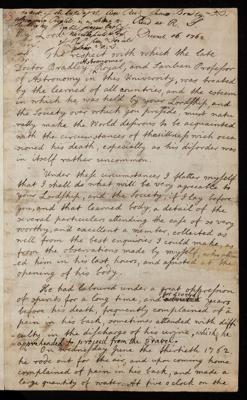 My Lord
June 16 1762
The respect with which the late
Doctor Bradley, Royal, and Savilian Professor
of Astronomy in this University, was treated
by the learned of all countries, and the esteem
in which he was held by your Lordship, and
the Society over which you preside, must natu
rally make the World desirous to be acquainted
with the circumstances of the disease which occa
sioned his death, especially as his disorder was
in itself rather uncommon.
Under these circumstances I flatter myself
that I shall do what will be very agreeable to
your Lordship, and the Society, if I lay before
you, and that learned body, a detail of the
several particulars attending the case of so very
worthy, and excellent a member, collected as
well from the best enquiries I could make, as
from the observations made by myself, who attend
ed him in his last hours, and assisted at the
opening of his body.
He had laboured under a great oppression
of spirits for a long time, and years
before his death, frequently complained of a
pain in his back, sometimes attended with diffi
culty in the discharge of his urine, which, he
apprehended to proceed from the gravel.
On Wednesday June the thirtieth 1762
he rode out for the air, and upon coming home
complained of pain in his back, and made a
large quantity of water. At five o'clock on the